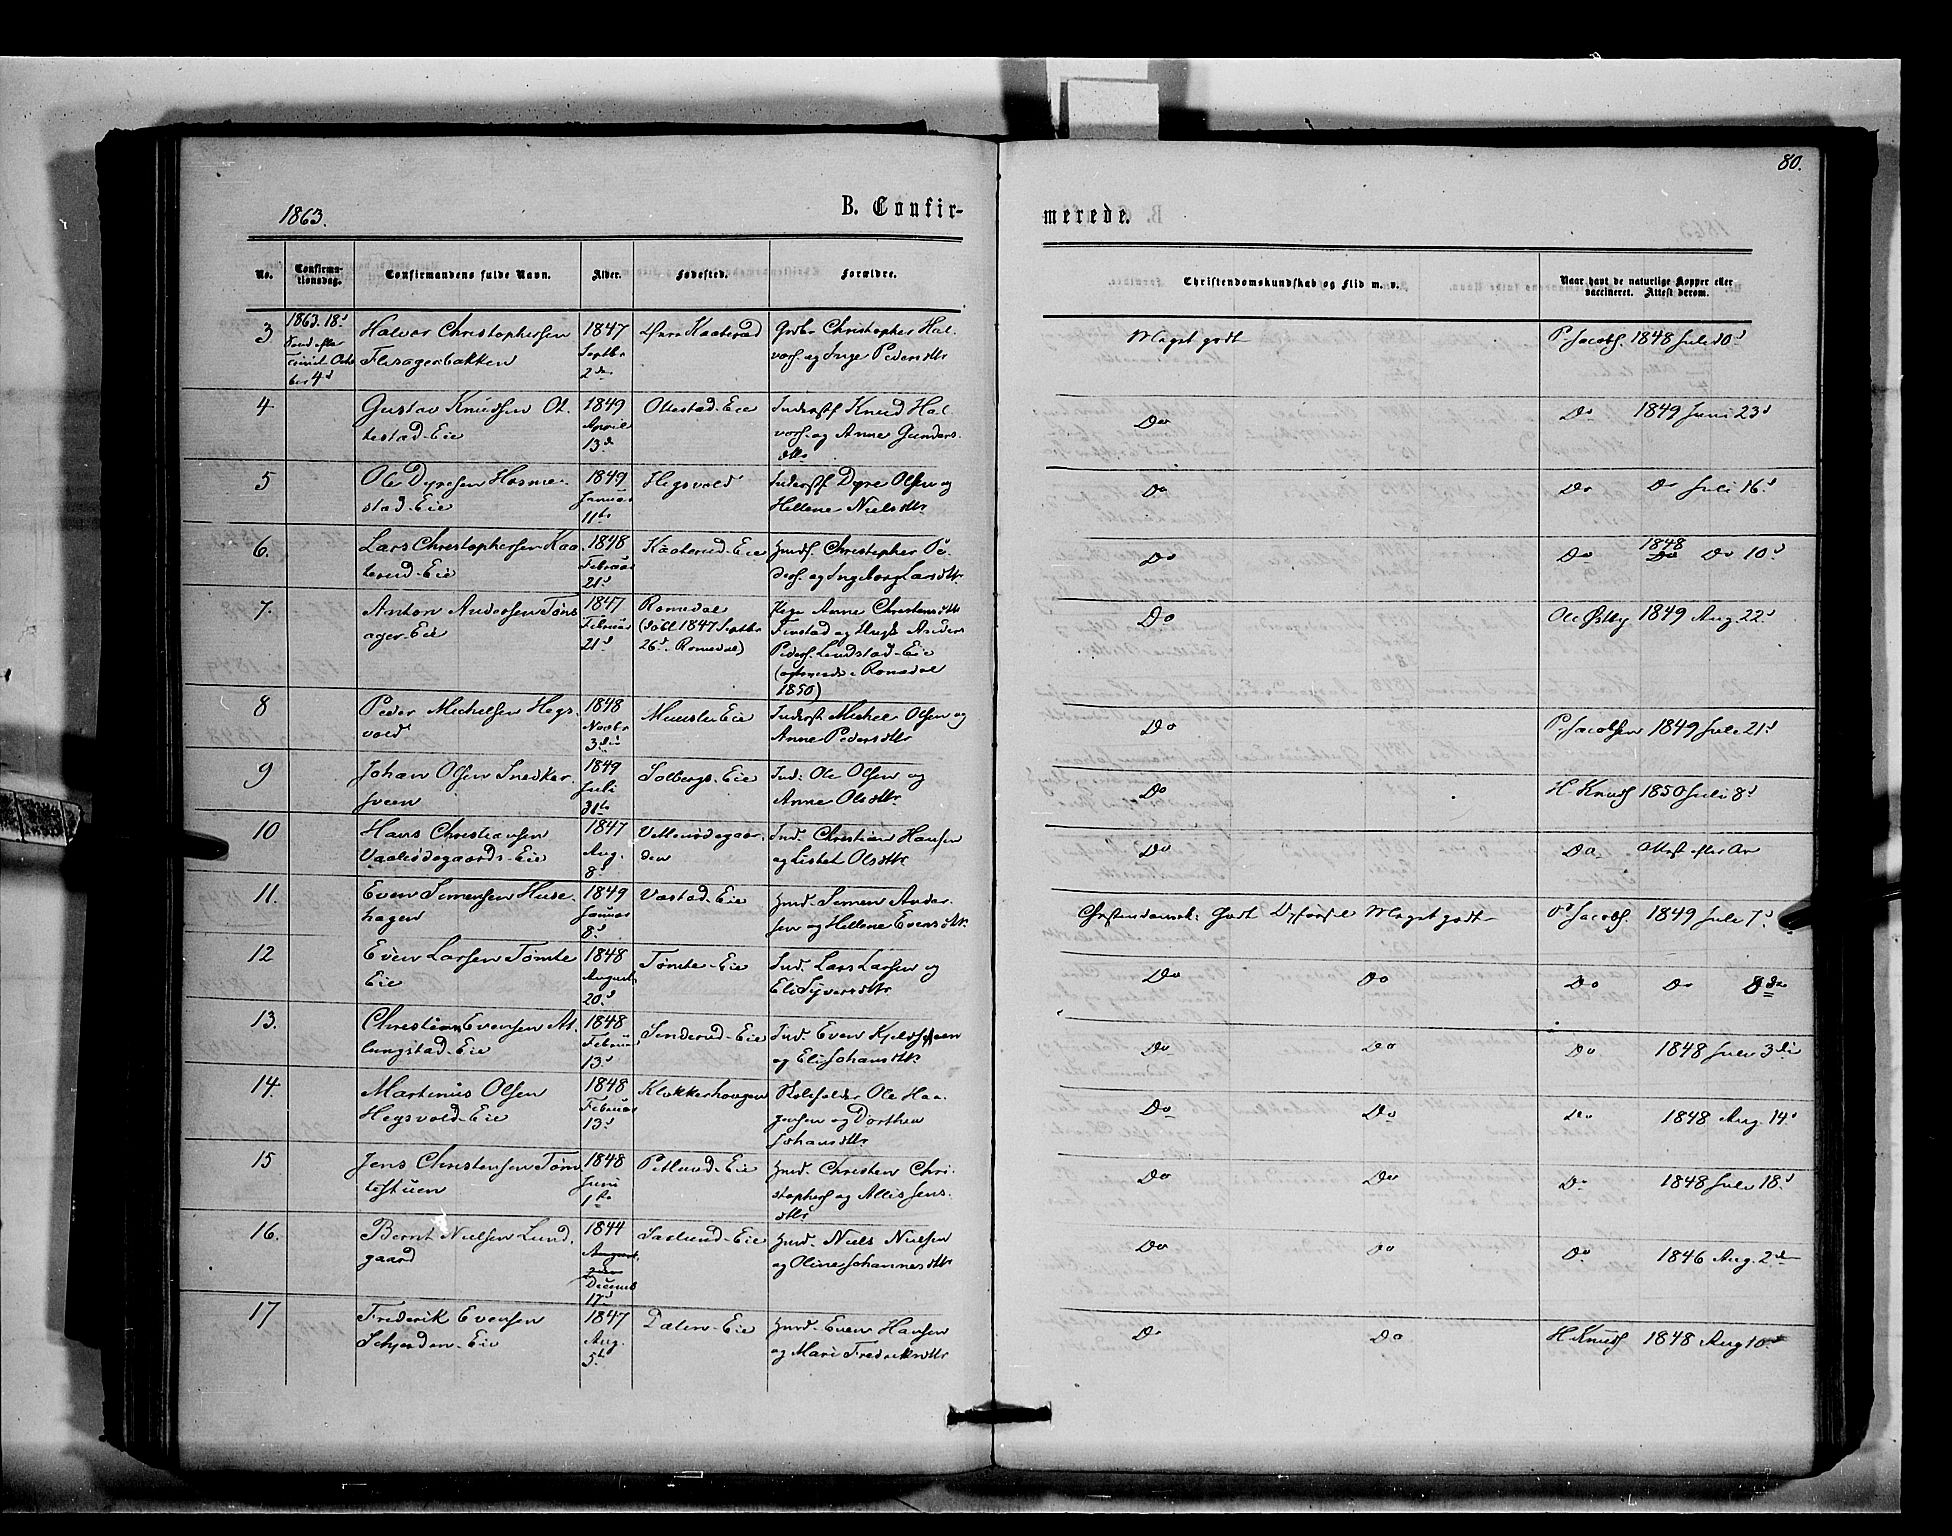 80.
1863.
B. Confir-
merede.
No.
Confirma-
tionsdag.
Confirmandens fulde Navn.
Alder.
Fødested.
Forældre.
Christendomskundskab og Flid m. v.
Naar havt de naturlige Kopper eller
vaccineret. Attest derom.
3
1863. 18d
Octo
ber 4d
Halvor Christophersen
Flisagerbakken
1847
Septbr
2den
Kaaterud
Christopher Hal-
vors. og Inge Pedersdtr
Meget godt
P. Jacobs. 1848 Juli 10d
4
Gustav Knudsen Ot-
testad-Eie
1849
April
13de
Ottestad-Eie
Inderst Knud Hal-
vors. og Anne Gunders-
dtr
Do
Do 1849 Juni 23d
5
Ole Dyresen Hosme-
stad-Eie
1849
Januar
11te
Hegsvold
Inderst Dyre Olsen og
Hellene Nielsdtr
Do
Do Do Juli 16d
6.
Lars Christophersen Kaa-
terud-Eie
1848
Februar
21d
Kaaterud-Eie
Husm. Christopher Pe-
ders. og Ingeborg Larsdtr
Do
Do 1848 Do 10d
7.
Anton Andersen Tøns
ager-Eie
1847
Februar
21d
Romedal
(døbt 1847 Septbr
26d. Romedal)
Pige Anne Christensdtr
Finstad og Ungk. Anders
Peders. Lundstad-Eie
(i Romedal
1850)
Do
Ole Østby 1849 Aug. 22d
8
Peder Michelsen Hegs-
vold
1848
Novbr
3die
Eie
Inderst Michel Olsen og
Anne Pedersdtr
Do
P. Jacobsen 1849 Juli 21d
9
Johan Olsen Snedker-
sveen
1849
Juli
31te
Solbergs-Eie
Ind. Ole Olsen og
Anne Olsdtr
Do
H. Knuds. 1850 Juli 8d
10
Hans Christiansen
Vaaleødegaards-Eie
1847
Aug.
8d
Vetleødegaar-
den
Ind. Christian Hansen
og Lisbet Olsdtr
Do
Do
11.
Even Simensen Huse-
hagen
1849
Januar
8d
Vestad-Eie
Husm. Simen Ander-
sen og Hellene Evensdtr.
Christendomsk: Godt Opførsel Meget godt
P. Jacobs. 1849 Juli 7d
12
Even Larsen Tømte
Eie
1848
August
20d
Tømte-Eie
Ind. Lars Larsen og
Eli Syversdtr
Do Do
Do Do 8de
13.
Christian Evensen At-
lungstad-Eie
1848
Februar
13d
Sinderud-Eie
Ind. Even Kjeldsen
og Eli Johansdtr.
Do Do
Do 1848 Juli 3die
14.
Martinus Olsen
Hegsvold-Eie
1848
Februar
13d
Klokkerhougen
Skoleholder Ole Haa-
gensen og Dorthea
Johansdtr
Do Do
Do 1848 Aug. 14d
15
Jens Christensen Tøm-
testuen
1848
Juni
1ste
Petlund-Eie
Husm. Christen Chri-
stophers. og Allis Jens-
dtr
Do Do
Do 1848 Juli 18d
16.
Bernt Nielsen Lund-
gaard
1844
August
2den
Decemb
17d
Saelund-Eie
Husm. Niels Nielsen
og Oline Johannesdtr
Do Do
Do 1846 Aug. 2den
17
Frederik Evensen
Schjerden-Eie
1847
Aug.
5te
Dalen-Eie
Husm. Even Hansen
og Mari Fredriksdtr
Do Do
H. Knuds. 1848 Aug 10d